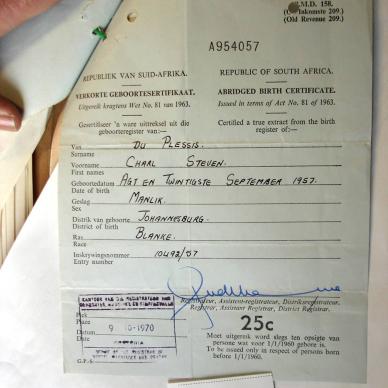 M.D. 158.
Inkomste 209.)
(Old Revenue 209.)
A954057
REPUBLIEK VAN SUID-AFRIKA.
REPUBLIC OF SOUTH AFRICA.
VERKORTE GEBOORTESERTIFIKAAT.
ABRIDGED BIRTH CERTIFICATE.
Uitgereik kragtens Wet No. 81 van 1963.
Issued in terms of Act No. 81 of 1963.
Gesertifiseer 'n ware uittreksel uit die geboorteregister van:—
Certified a true extract from the birth register of:—
Van
Surname
DU PLESSIS.
Voorname
First names
CHARL STEVEN.
Geboortedatum
Date of birth
AGT EN TWINTIGSTE SEPTEMBER 1957.
Geslag
Sex
MANLIK.
Distrik van geboorte
District of birth
JOHANNESBURG.
Ras
Race
BLANKE.
Inskrywingsnommer
Entry number
10492/57
Registrateur, Assistent-registrateur, Distriksregistrateur.
Registrar, Assistant Registrar, District Registrar.
Plek
Place
Datum
Date
KANTOOR VAN DIE REGISTRATEUR VAN
9 10-1970
PRETORIA
25c
Moet uitgereik word slegs ten opsigte van persone wat voor 1/1/1960 gebore is.
To be issued only in respect of persons born before 1/1/1960.
G.P.-S.